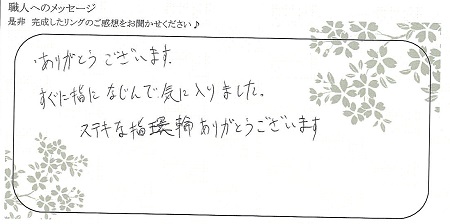 職人へのメッセージ
是非 完成したリングのご感想をお聞かせください♪
ありがとうございます。
すぐに指になじんで気に入りました。
ステキな指輪ありがとうございます